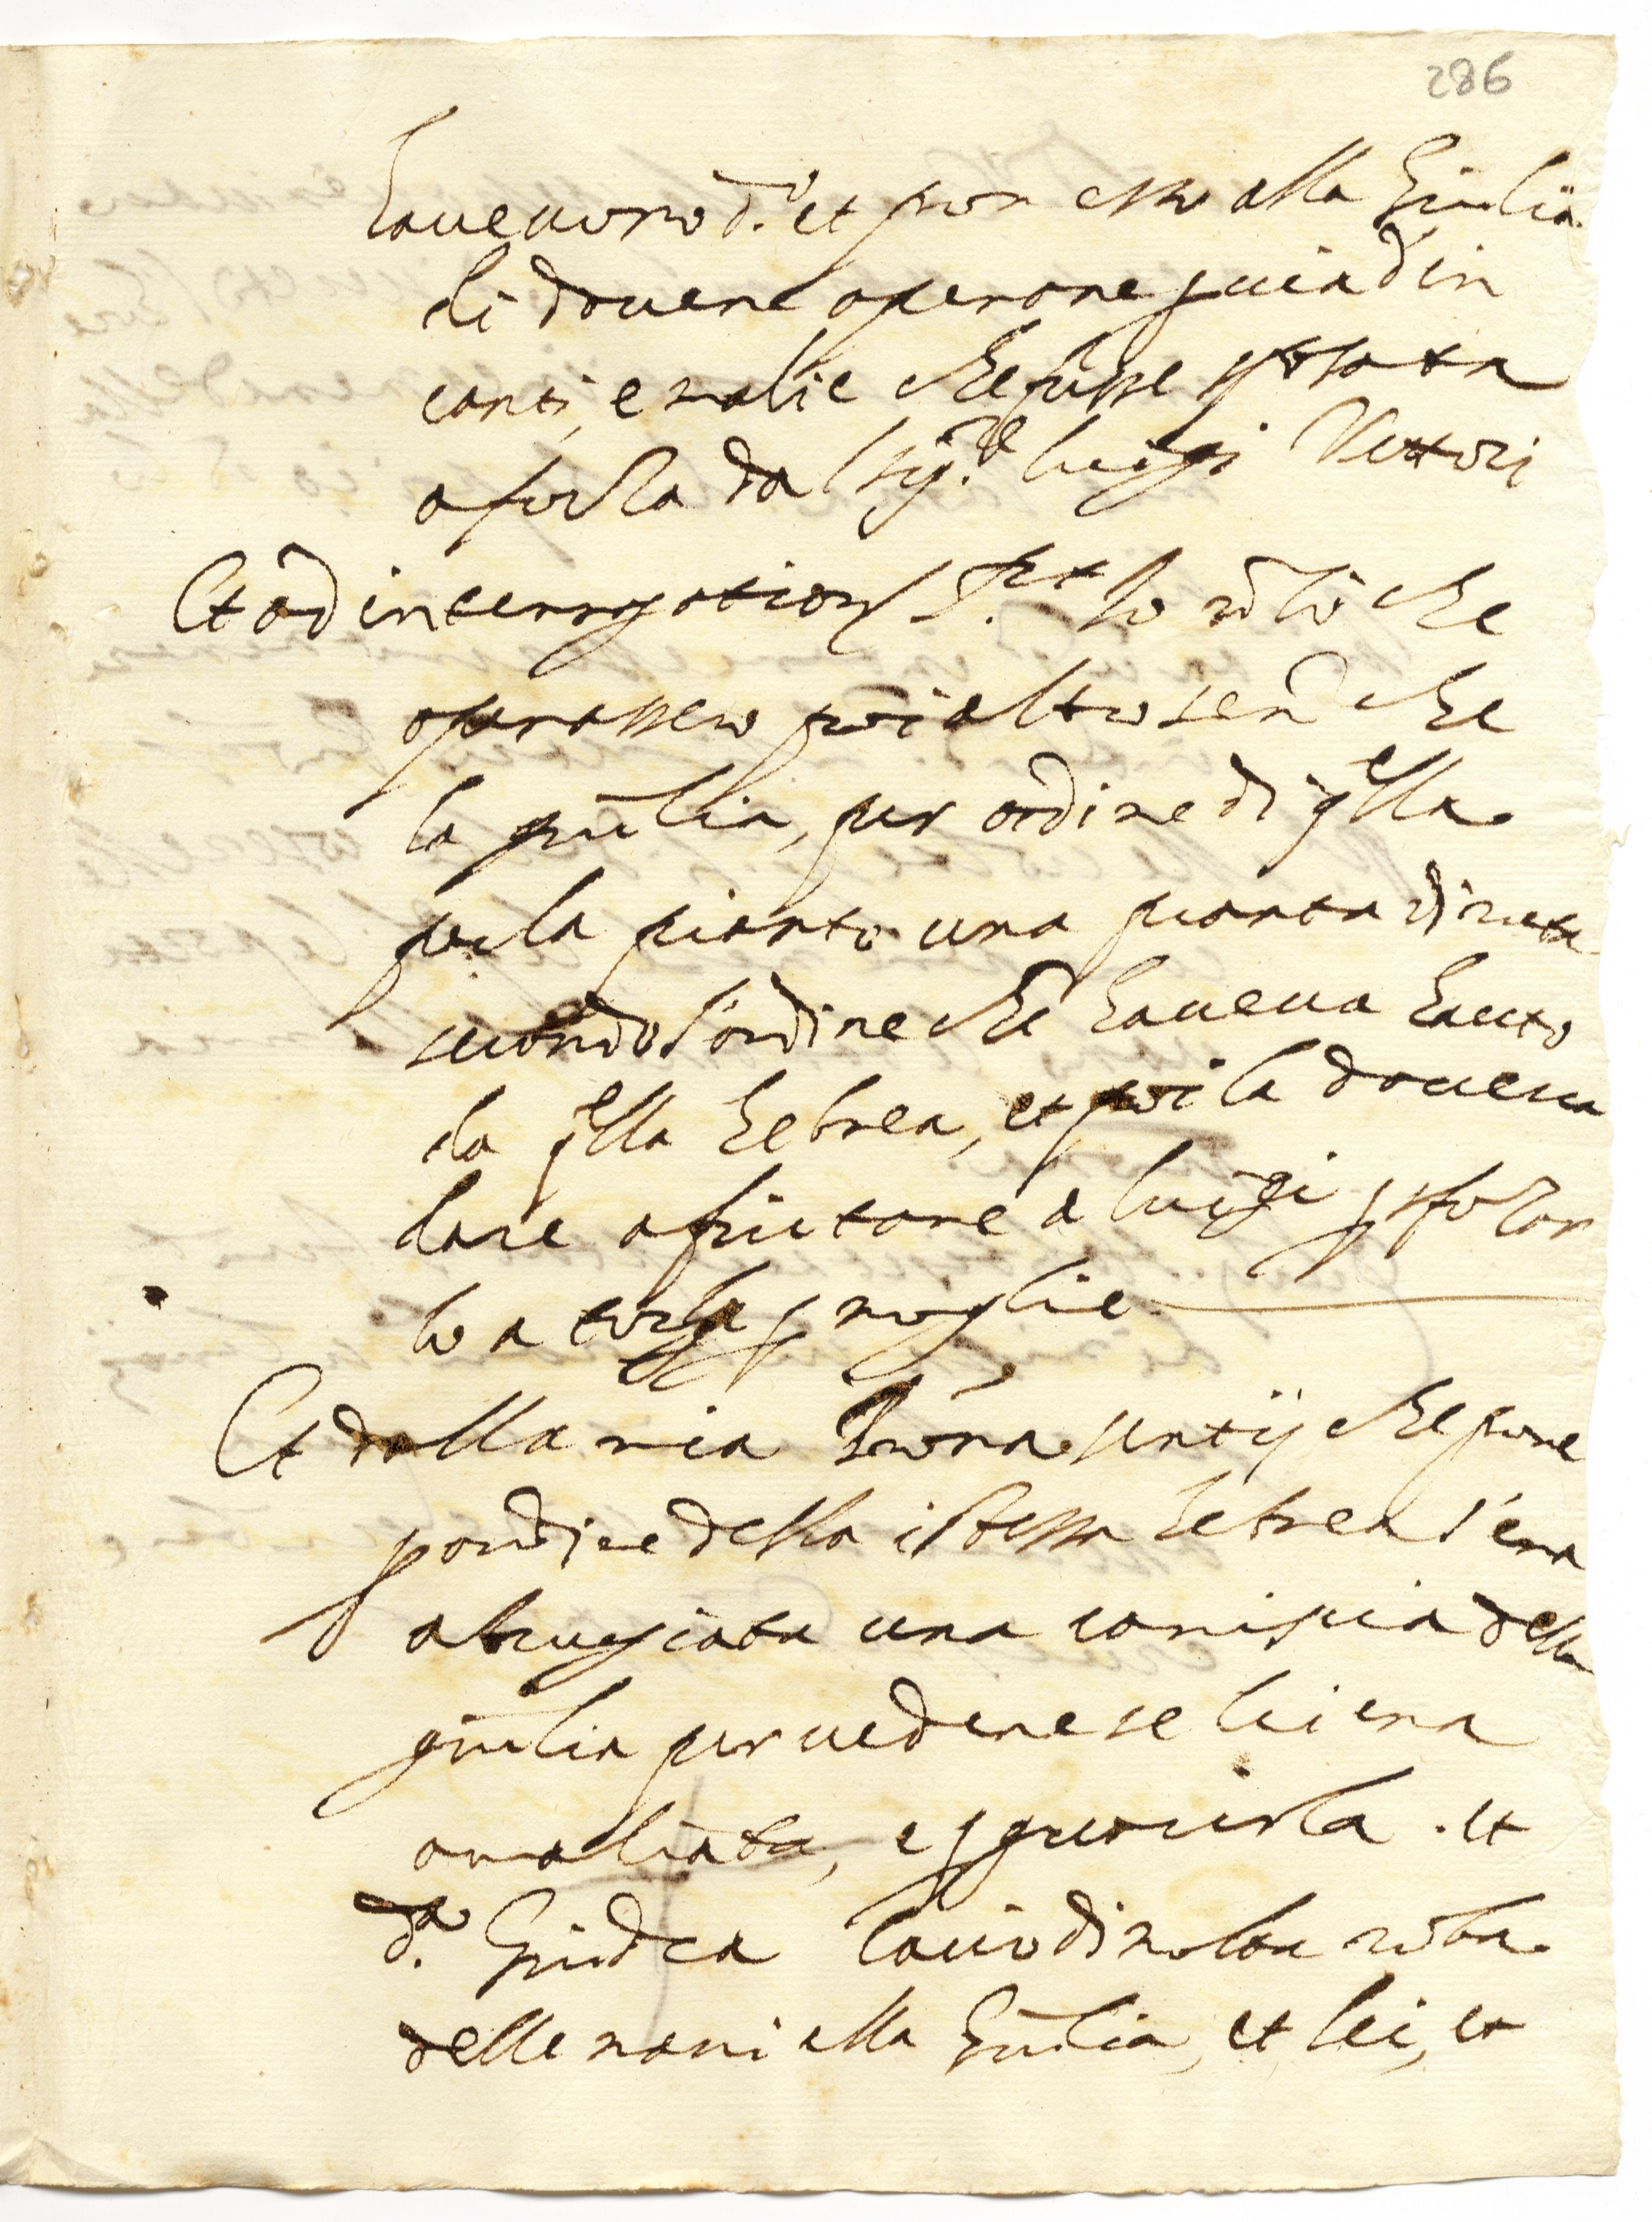 286
haveuono d.o et per esso alla Giulia
di douere operare p uia d in
canti, e malie che fusse sposata
a forza dal sig.re luigi Vettori
Et ad interrogationem d.t Io nõ sò che
operassero poi altro senõ che
la giulia, per ordine di qlla
per la pianto una pianta di ruta
secondo l'ordine che haueua hauto
da qlla hebrea, et poi la doueua
dare a fiutare a luigi p sforzar
lo a torla p moglie
Et dalla mia Sig.ra sentij che pure
p ordine della istessa hebrea s'era
abrugiata una camiscia della
giulia per uedere se lei era
amaliata, e p guarirla. et
d.a Giudea cauò di molta roba
delle mani alla Giulia, et lei, et